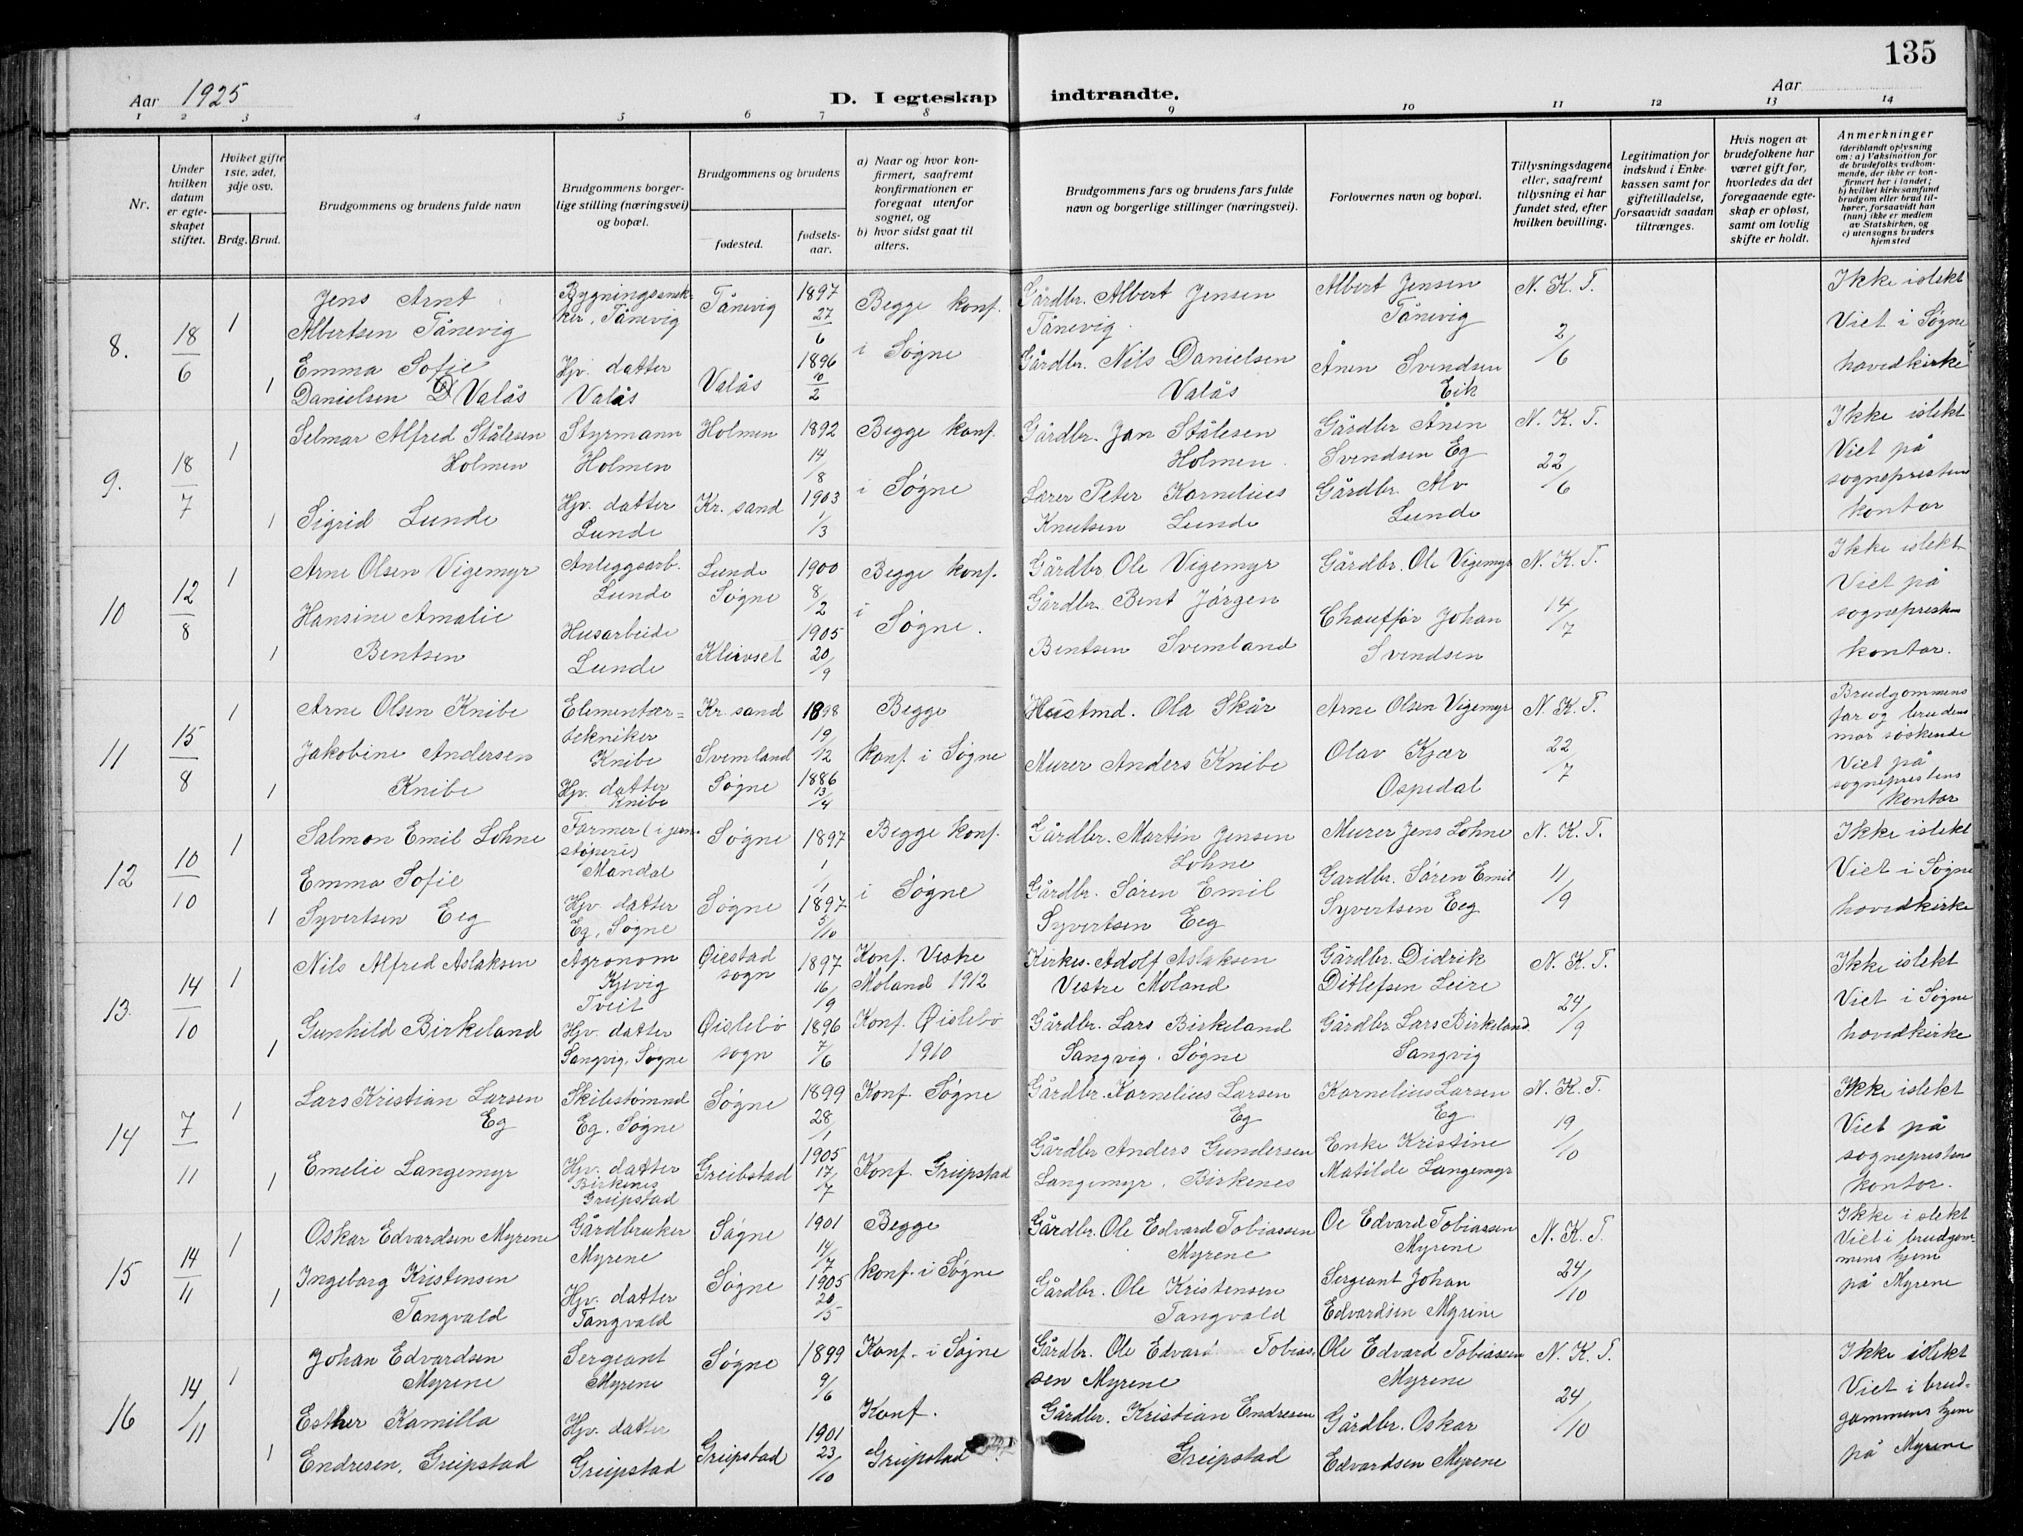 135
Aar 1925
D. I egteskap
indtraadte.
Aar
1 2 3 4 5 6 7 8 9 10 11 12 13 14
Nr.
Under hvilken datum er egteskapet stiftet.
Hvilket gifte 1ste, 2det, 3dje osv.
Brdg. Brud.
Brudgommens og brudens fulde navn
Brudgommens borgerlige stilling (næringsvei) og bopæl.
Brudgommens og brudens
fødested.
fødselsaar.
a) Naar og hvor konfirmert, saafremt konfirmationen er foregaat utenfor sognet, og
b) hvor sidst gaat til alters.
Brudgommens fars og brudens fars fulde navn og borgerlige stillinger (næringsvei).
Forlovernes navn og bopæl.
Tillysningsdagene eller, saafremt tillysning ei har fundet sted, efter hvilken bevilling.
Legitimation for indskud i Enkekassen samt for giftetilladelse, forsaavidt saadan tiltrænges.
Hvis nogen av brudefolkene har været gift før, hvorledes da det foregaaende egteskap er opløst, samt om lovlig skifte er holdt.
Anmerkninger
(deriblandt oplysning om: a) Vaksination for de brudefolks vedkommende, der ikke er konfirmert her i landet; b) hvilket kirkesamfund brudgom eller brud tilhører, forsaavidt han (hun) ikke er medlem av Statskirken, og c) utensogns bruders hjemsted
8. 18/6 1
Jens Arnt
Albertsen Tånevig
Bygningssnekker, Tånevig
Tånevig
1897 27/6
Begge konf. i Søgne
Gårdbr. Albert Jensen
Tånevig.
Albert Jensen
Tånevig
N. K. T. 2/6
Ikke i slekt
Viet i Søgne
hovedkirke
1
Emma Sofie
Danielsen Valås
Hjv. datter
Valås
Valås
1896 10/2
Gårdbr. Nils Danielsen
Valås
Ånen Svendsen
Eik
9. 18/7 1
Selmar Alfred Stålesen
Holmen
Styrmann
Holmen
Holmen
1892 14/8
Begge konf. i Søgne
Gårdbr. Jan Stålesen
Holmen.
Gårdbr Ånen
Svendsen Eg
N. K. T. 22/6
Ikke i slekt
Viet på
sogneprestens
kontor
1
Sigrid Lunde
Hjv. datter
Lunde
Kr. sand
1903 1/3
Lærer Peter Kornelius
Knutsen Lunde
Gårdbr. Alv
Lunde
10 12/8 1
Arne Olsen Vigemyr
Anleggsarb.
Lunde
Lunde
Søgne
1900 8/2
Begge konf. i Søgne.
Gårdbr Ole Vigemyr
Gårdbr. Ole Vigemyr
N. K. T. 14/7
Ikke i slekt
Viet på
sogneprestens
kontor.
1
Hansine Amalie
Bentsen
Husarbeide
Lunde
Kleivset
1905 20/9
Gårdbr. Bent Jørgen
Bentsen Svemland
Chauffør Johan
Svendsen
11 15/8 1
Arne Olsen Knibe
Elementærtekniker
Knibe
Kr. sand
1898 19/12
Begge
konf. i Søgne
Hustmd. Ola Skår
Arne Olsen Vigemyr
N. K. T. 22/7
Brudgommens
far og brudens
mor søskende
Viet på
sogneprestens
kontor
1
Jakobine Andersen
Knibe
Hjv. datter
Knibe
Svemland
Søgne
1886 13/4
Murer Anders Knibe
Olav Kjær
Ospedal
12 10/10 1
Salmon Emil Lohne
Former (i jernstøperi)
Mandal
Søgne
1897 1/1
Begge konf. i Søgne
Gårdbr. Martin Jensen
Lohne
Murer Jens Lohne
N. K. T. 11/9
Ikke i slekt
Viet i Søgne
hovedkirke
1
Emma Sofie
Syvertsen Eeg
Hjv. datter
Eg, Søgne
Søgne
1897 5/10
Gårdbr. Søren Emil
Syvertsen Eeg
Gardbr. Søren Emil
Syvertsen Eeg
13. 14/10 1
Nils Alfred Aslaksen
Agronom
Kjevig
Tveit
Øiestad
sogn
1897 16/9
Konf. Vestre
Moland 1912
Kirkes. Adolf Aslaksen
Vestre Moland
Gårdbr. Didrik
Ditlefsen Leire
N. K. T. 24/9
Ikke i slekt
Viet i Søgne
hovedkirke
1
Gunhild Birkeland
Hjv. datter
Sangvig, Søgne
Øislebø
sogn
1896 7/6
Konf. Øislebø
1910
Gårdbr. Lars Birkeland
Sangvig. Søgne
Gårdbr Lars Birkeland.
Sangvig
14 7/11 1
Lars Kristian Larsen
Eg
Skibstømmd
Eg. Søgne
Søgne
1899 28/1
Konf. Søgne
Gårdbr. Kornelius Larsen
Eg
Kornelius Larsen
Eg
N. K. T. 19/10
Ikke i slekt
Viet på
sogneprestens
kontor.
1
Emelie Langemyr
Hjv. datter
Birkenes
Greipstad
Greibstad
1905 17/7
Konf. Greipstad
Gårdbr Anders Gundersen
Langemyr. Birkenes
Enke Kristine
Matilde Langemyr
15 14/11 1
Oskar Edvardsen Myrene
Gårdbruker
Myrene
Søgne
1901 14/7
Begge
konf. i Søgne
Gårdbr. Ole Edvard Tobiassen
Myrene
Oe Edvard Tobiassen
Myrene
N. K. T. 24/10
Ikke i slekt
Viet i brudgommens hjem
på Myrene
1
Ingeborg Kristensen
Tangvald
Hjv. datter
Tangvald
Søgne
1905 20/5
Gårdbr. Ole Kristensen
Tangvald
Sergeant Johan
Edvardsen Myrene
16 14/11 1
Johan Edvardsen
Myrene
Sergeant
Myrene
Søgne
1899 9/6
Konf. i Søgne
Gårdbr. Ole Edvard Tobiassen Myrene
Ole Edvard Tobiassen
Myrene
N. K. T. 24/10
Ikke i slekt
Viet i brudgommens hjem
på Myrene
1
Esther Kamilla
Endresen, Greipstad
Hjv. datter
Greipstad
Greipstad
1901 23/10
Konf.
Greipstad
Gårdbr. Kristian Endresen
Greipstad
Gårdbr. Oskar
Edvardsen Myrene